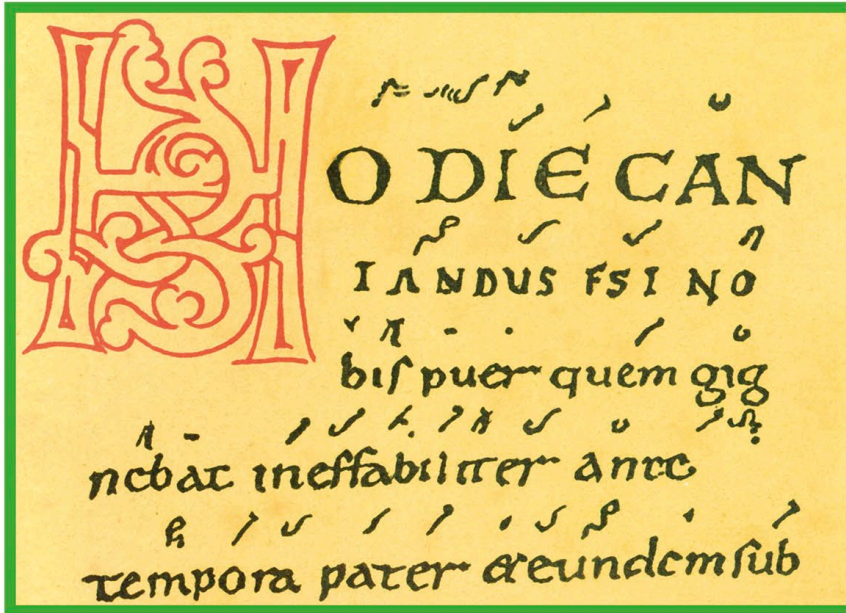 HODIE CAN
TANDUS EST NO
bis puer quem gig
nebat ineffabiliter ante
tempora pater & eundem sub